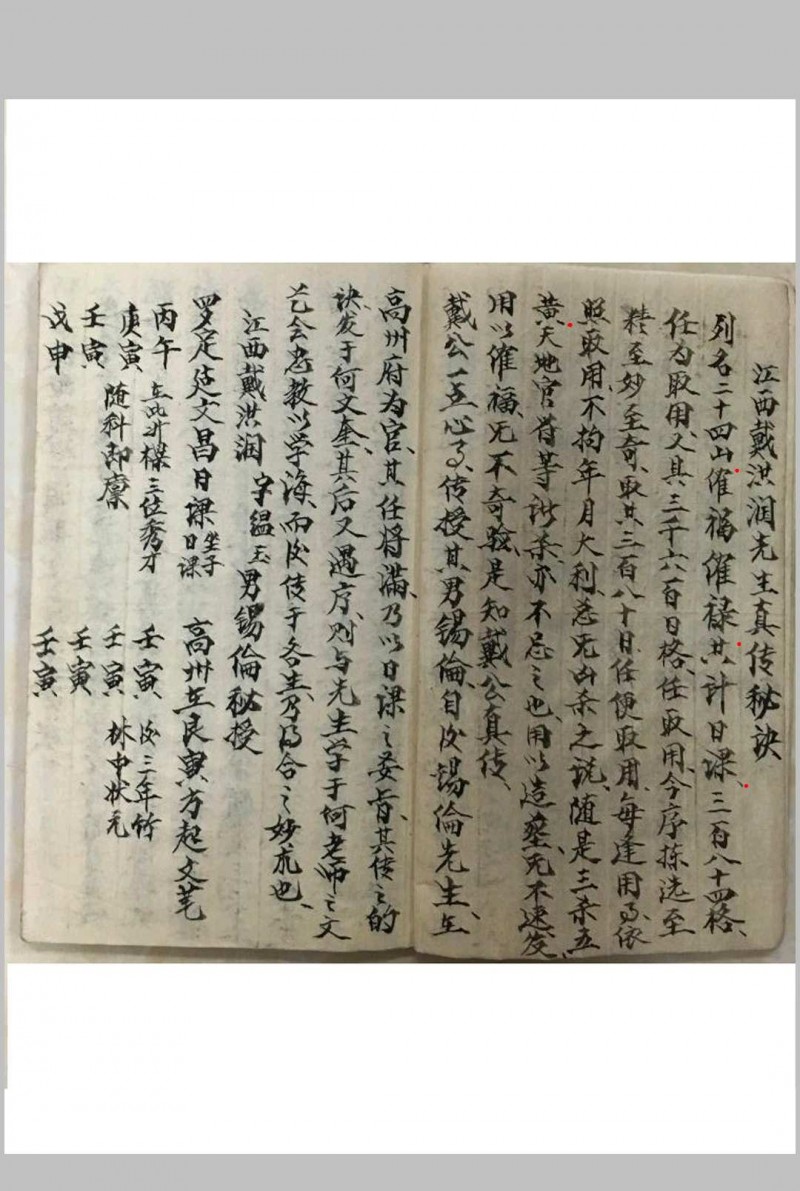 江西戴洪润先生真传秘诀
列名二十四山催福催禄共计日课三百八十四格、
任为取用、又其三千六百日格、任取用、今序拣选至
精至妙至奇、取其三百八十日任便取用、每逢用事依
照取用、不拘年月大利、忌凶杀之说、随是三杀五
黄天地官符等诸杀、亦不忌之也、用以造葬、无不速发、
用以催福、无不奇验、是知戴公真传、
戴公一点心事、传授其男锡倫、自后锡倫先生、在
高州府为官、其任将满、乃以日课之要旨、其传之的
诀、发于何文奎、其后又遇序、则与先生学于何老师之文
会忠教以学海、而后传于各生、乃合之妙术也、
江西戴洪润 字縕玉 男锡倫秘授
罗定建文昌日课 坐子日课 高州在艮寅方起文笔
丙午 三位秀才 壬寅 后三年竹
庚寅 随科即廪 壬寅 林中状元
壬寅 壬寅
戊申 壬寅